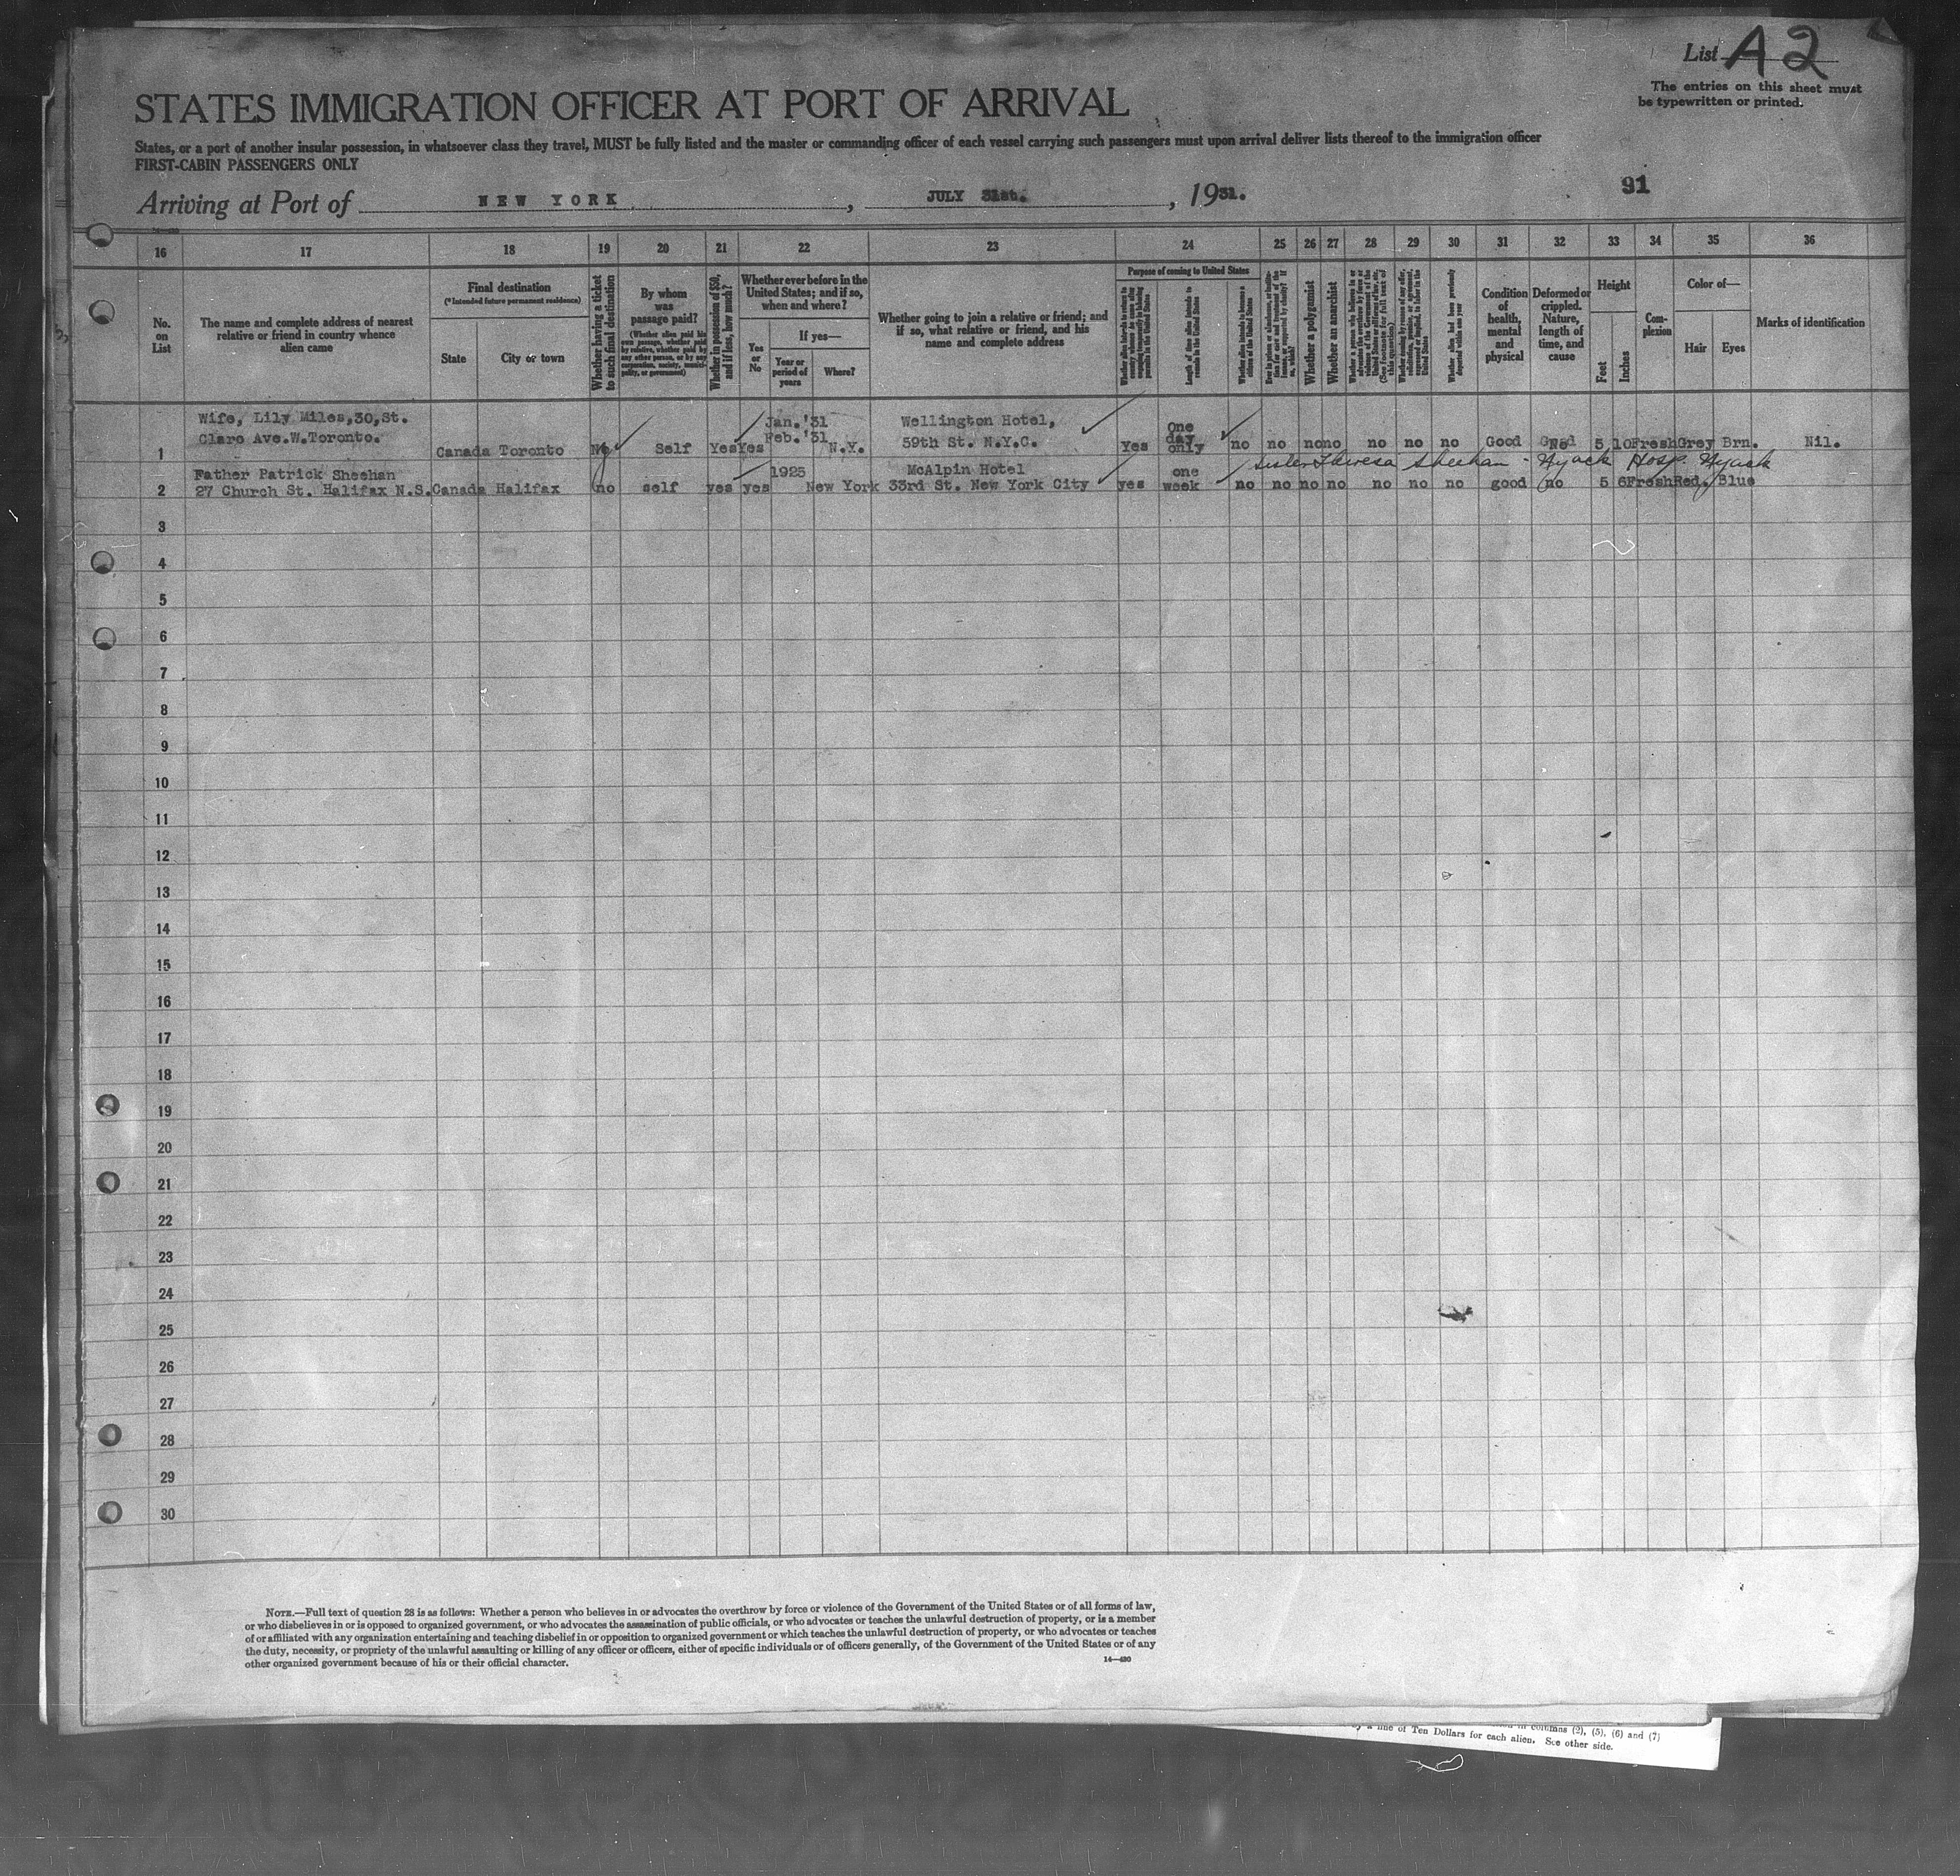 List A2
The entries on this sheet must
be typewritten or printed.
STATES IMMIGRATION OFFICER AT PORT OF ARRIVAL
States, or a port of another insular possession, in whatsoever class they travel, MUST be fully listed and the master or commanding officer of each vessel carrying such passengers must upon arrival deliver lists thereof to the immigration officer
FIRST-CABIN PASSENGERS ONLY
91
Arriving at Port of NEW YORK, JULY 31st., 1931.
16 17 18 19 20 21 22 23 24 25 26 27 28 29 30 31 32 33 34 35 36
No. on List
The name and complete address of nearest relative or friend in country whence alien came
Final destination
(* Intended future permanent residence)
State
City or town
Whether having a ticket to such final destination
By whom was passage paid?
(Whether alien paid his own passage, whether paid by relative, whether paid by any other person, or by any corporation, society, municipality, or government)
Whether in possession of $50, and if less, how much?
Whether ever before in the United States; and if so, when and where?
Yes or No
If yes—
Year or period of years
Where?
Whether going to join a relative or friend; and if so, what relative or friend, and his name and complete address
Purpose of coming to United States
Length of time alien intends to remain in the United States
Whether alien intends to become a citizen of the United States
Whether a polygamist
Whether an anarchist
Whether alien had been previously deported within one year
Condition of health, mental and physical
Deformed or crippled. Nature, length of time, and cause
Height
Feet
Inches
Complexion
Color of—
Hair
Eyes
Marks of identification
Wife, Lily Miles,30,St. Jan.'31 Wellington Hotel, One
Clare Ave.W.Toronto. Feb.'31 59th St. N.Y.C. day
1 Canada Toronto No Self Yes Yes N.Y. Yes only no no no no no no no Good No 5 10 Fresh Grey Brn. Nil.
Sister Theresa Sheehan - Nyack Hosp. Nyack
Father Patrick Sheehan 1925 McAlpin Hotel one
2 27 Church St. Halifax N.S. Canada Halifax no self yes yes New York 33rd St. New York City yes week no no no no no no no good no 5 6 Fresh Red. Blue
3
4
5
6
7
8
9
10
11
12
13
14
15
16
17
18
19
20
21
22
23
24
25
26
27
28
29
30
NOTE.—Full text of question 28 is as follows: Whether a person who believes in or advocates the overthrow by force or violence of the Government of the United States or of all forms of law,
or who disbelieves in or is opposed to organized government, or who advocates the assassination of public officials, or who advocates or teaches the unlawful destruction of property, or is a member
of or affiliated with any organization entertaining and teaching disbelief in or opposition to organized government or which teaches the unlawful destruction of property, or who advocates or teaches
the duty, necessity, or propriety of the unlawful assaulting or killing of any officer or officers, either of specific individuals or of officers generally, of the Government of the United States or of any
other organized government because of his or their official character.
14—430
in columns (2), (5), (6) and (7)
by a fine of Ten Dollars for each alien. See other side.